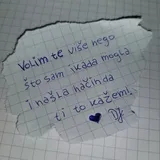 Volim te više nego
što sam ikada mogla
i našla način da
ti to kažem!